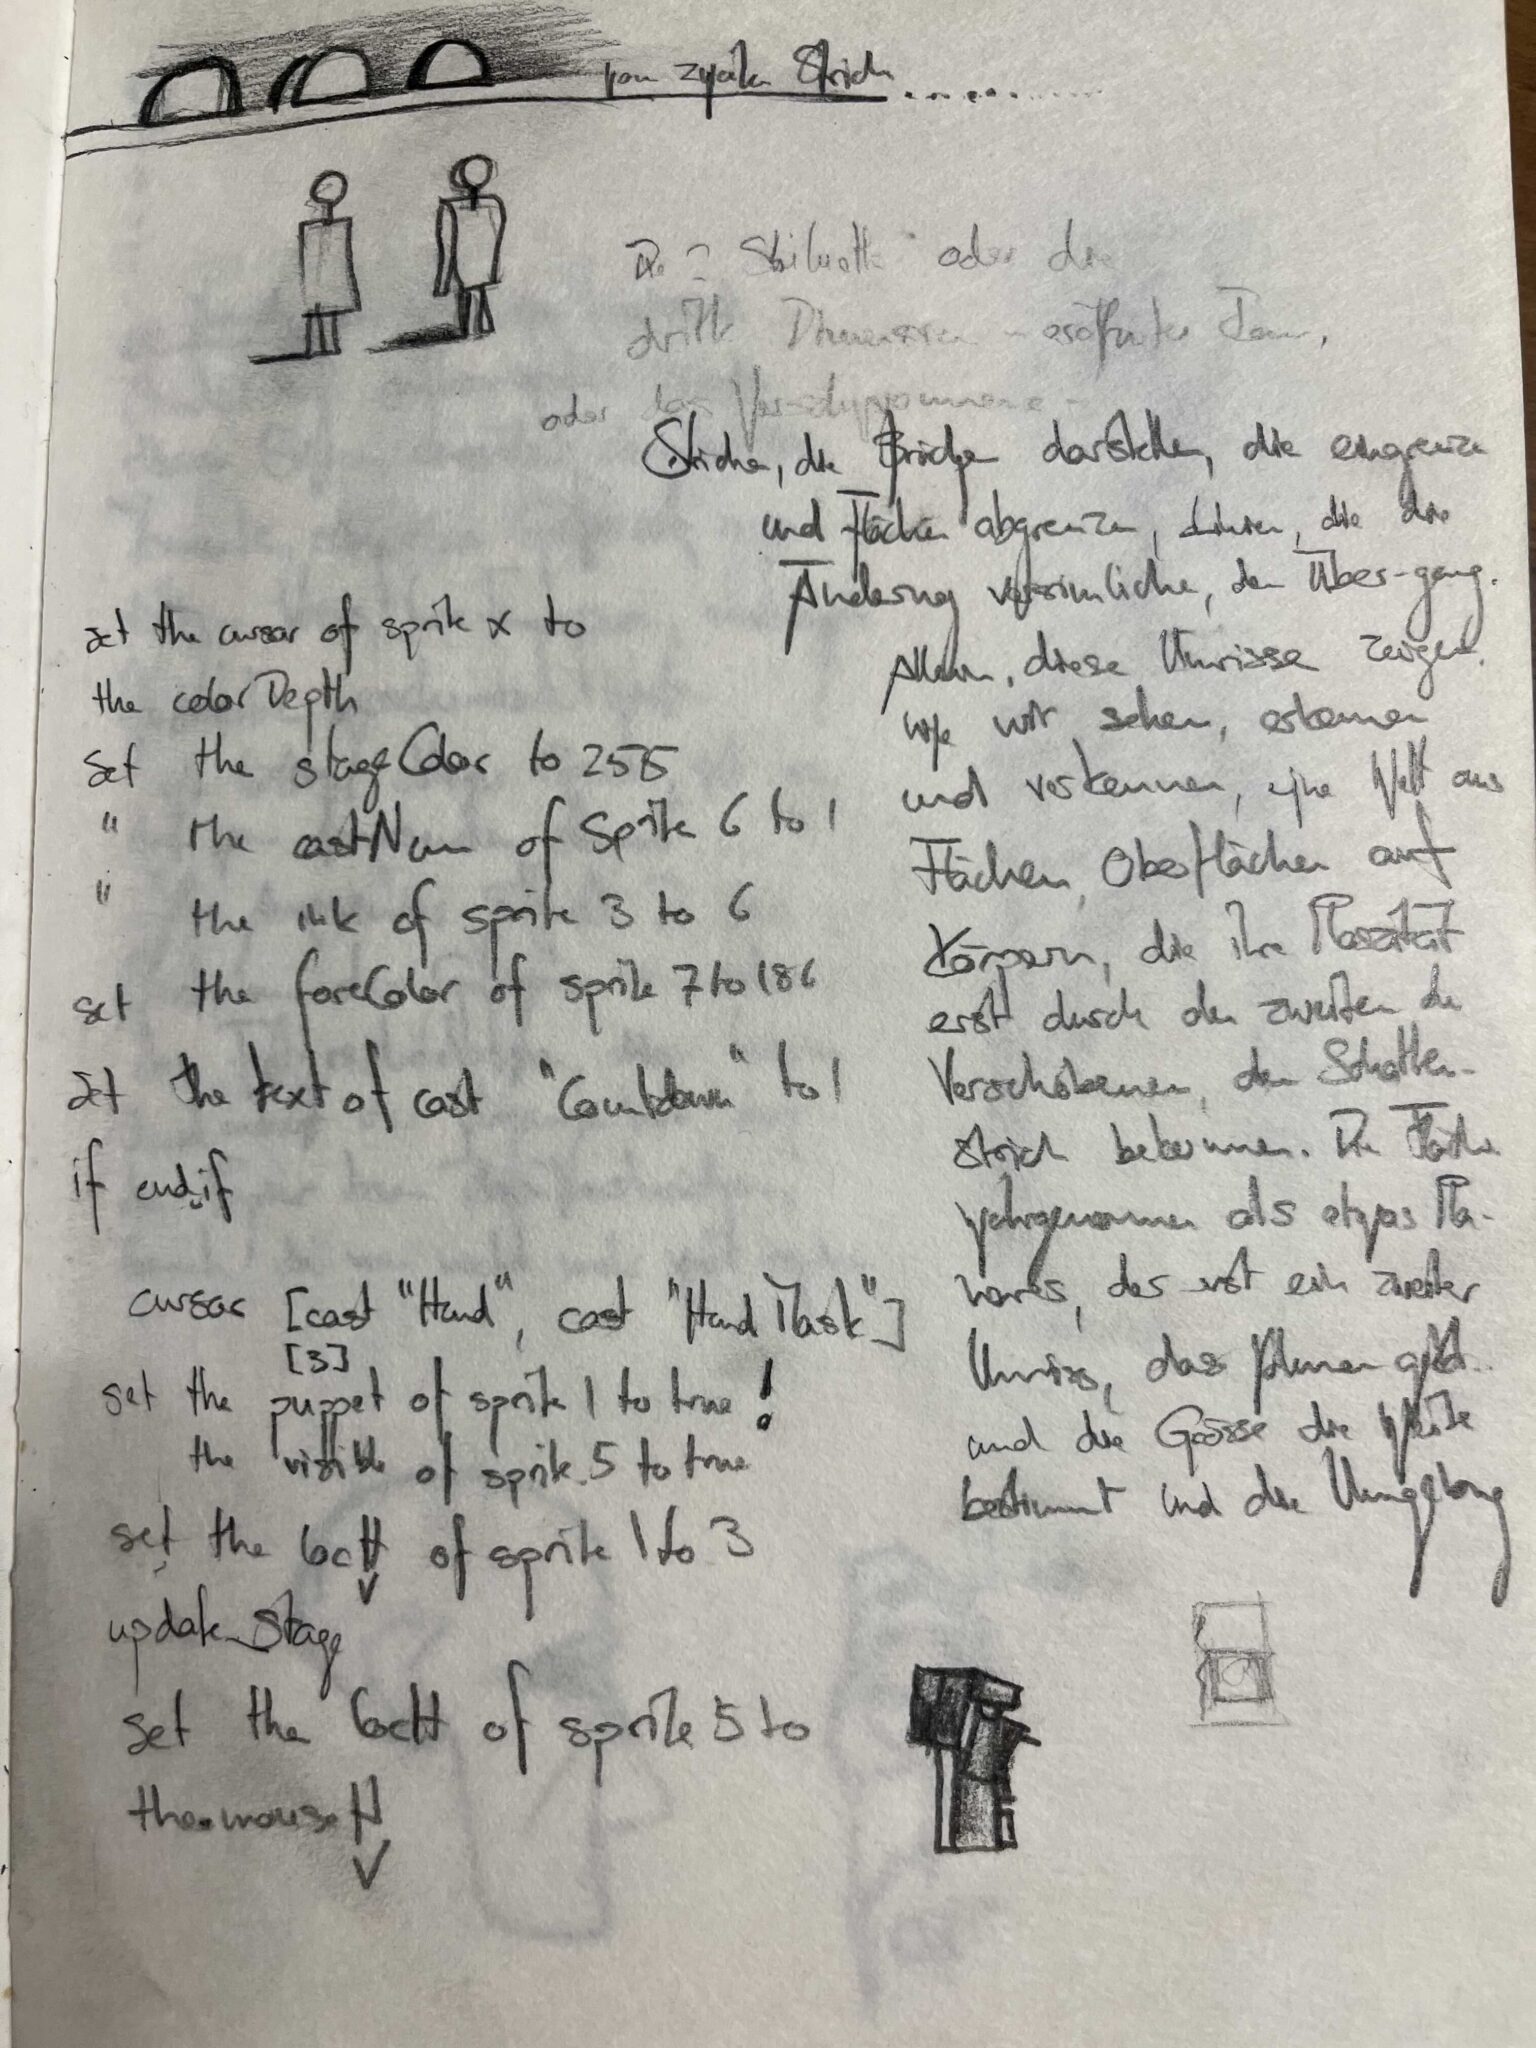 vom zweiten Strich
oder die
dritte Dimension - eröffneter Raum,
oder das
Striche, die Brüche darstellen, die eingrenzen
und Flächen abgrenzen, Linien, die die
Änderung versinnlichen, den Über-gang.
Allein, diese Umrisse zeigen,
wie wir sehen, erkennen
und verkennen, eine Welt aus
Flächen, Oberflächen auf
Körpern, die ihre Plastizität
erst durch den zweiten den
Verschobenen, den Schatten-
strich bekommen. Die Fläche
wahrgenommen als etwas
das ist ein zweiter
Umriss, das Volumen gibt.
und die Grösse die Weite
bestimmt und die Umgebung
set the cursor of sprite x to
the colorDepth
set the stageColor to 255
" the castNum of Sprite 6 to 1
" the ink of sprite 3 to 6
set the foreColor of sprite 7 to 186
set the text of cast "Countdown" to 1
if end if
cursor [cast "Hand", cast "Hand Mask"]
[3]
set the puppet of sprite 1 to true !
the visible of sprite 5 to true
set the locH of sprite 1 to 3
V
update stage
set the locH of sprite 5 to
the mouse H
V